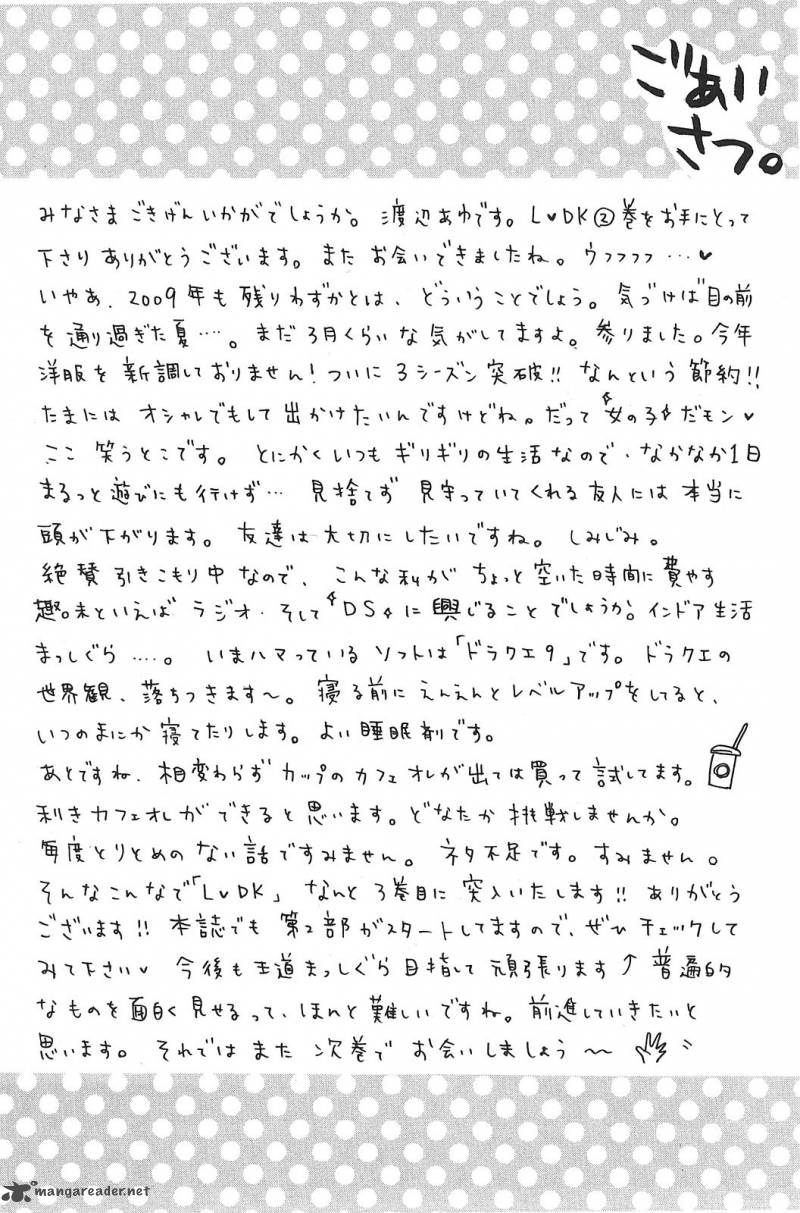 ごあい
さつ。
みなさま ごきげんいかがでしょうか。 渡辺あゆです。 L♥DK②巻をお手にとって
下さり ありがとうございます。 また お会いできましたね。 ウフフフフ…♥
いやあ、2009年も 残りわずかとは、 どういうことでしょう。 気づけば 目の前
を 通り過ぎた夏…。 まだ3月くらいな気がしてますよ。 参りました。今年
洋服を 新調しておりません! ついに3シーズン突破!! なんという節約!!
たまには オシャレでもして 出かけたいんですけどね。だって 女の子 だモン♥
ここ 笑うとこです。 とにかくいつも ギリギリの生活なので、なかなか1日
まるっと遊びにも行けず… 見捨てず 見守っていてくれる友人には 本当に
頭が下がります。 友達は大切にしたいですね。 しみじみ。
絶賛 引きこもり中なので、 こんな私が ちょっと空いた時間に費やす
趣味といえば ラジオ・そして DS に興じることでしょうか。インドア生活
まっしぐら…。 いまハマっている ソフトは「ドラクエ9」です。ドラクエの
世界観、落ちつきます～。 寝る前に えんえんとレベルアップをしてると、
いつのまにか 寝てたりします。よい睡眠剤です。
あとですね、相変わらず カップのカフェオレが出ては買って 試してます。
利きカフェオレができると思います。どなたか 挑戦しませんか。
毎度とりとめの ない話ですみません。 ネタ不足です。すみません。
そんなこんなで「L♥DK」 なんと3巻目に 突入いたします!! ありがとう
ございます!! 本誌でも 第2部がスタートしてますので、ぜひ チェックして
みて下さい♥ 今後も 王道まっしぐら 目指して 頑張ります↑ 普遍的
なものを 面白く 見せるって、ほんと難しいですね。前進していきたいと
思います。 それでは また 次巻で お会いしましょう～
mangareader.net